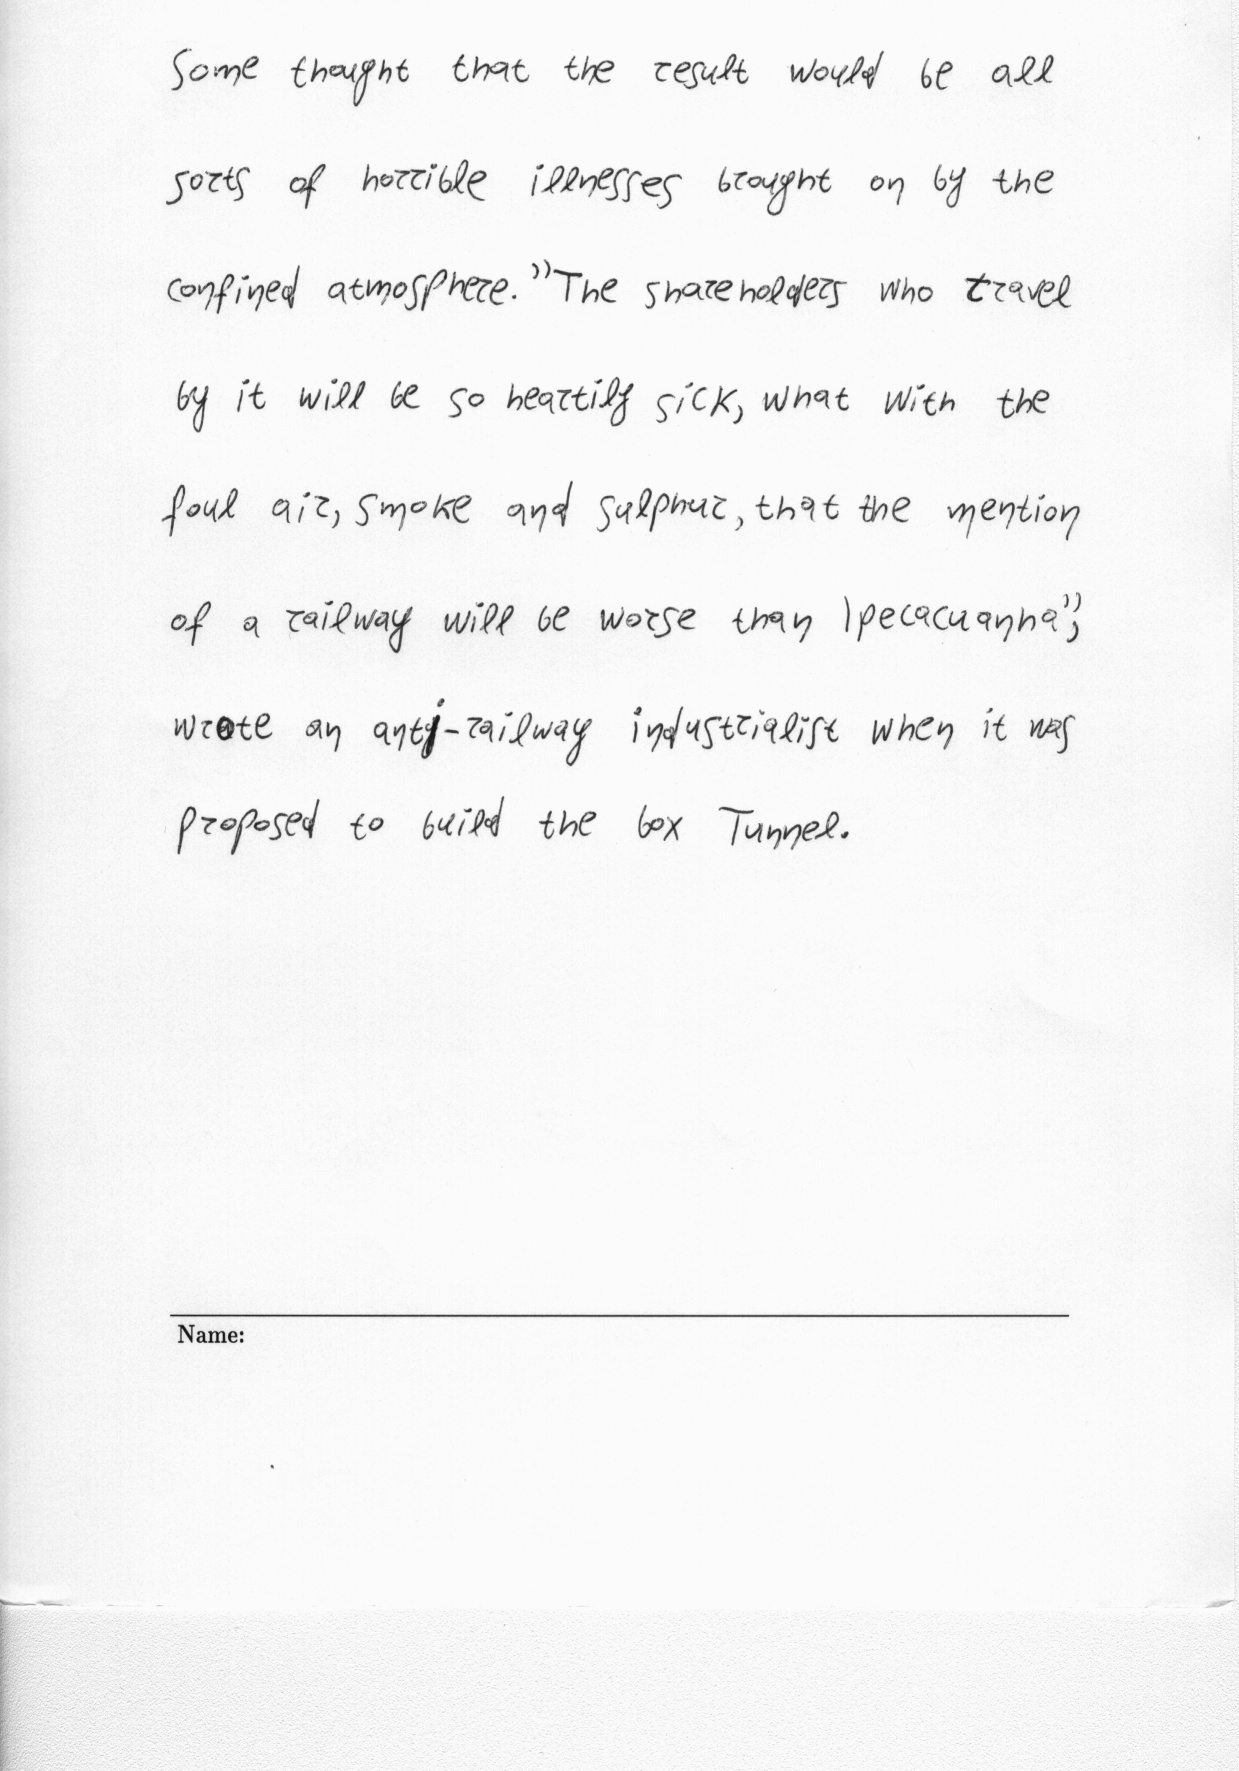 Some thought that the result would be all
sorts of horrible illnesses brought on by the
confined atmosphere. "The shareholders who travel
by it will be so heartily sick, what with the
foul air, smoke and sulphur, that the mention
of a railway will be worse than Ipecacuanha",
wrote an anti-railway industrialist when it was
proposed to build the box Tunnel.
Name: